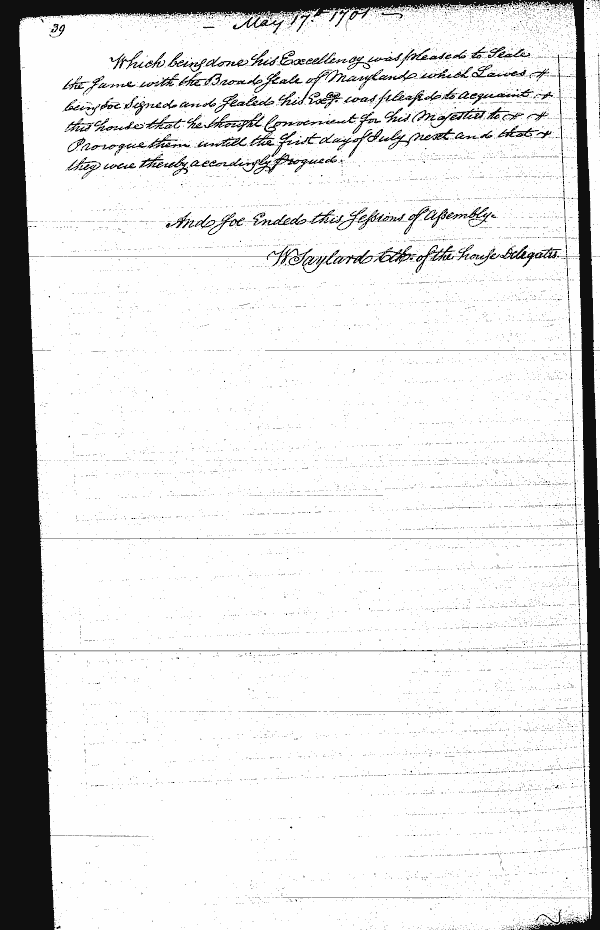 39
— May 17.th 1701 —
Which being done his Excellency was pleased to Seale
the Same with the Broad Seale of Maryland which Lawes
being soe Signed and Sealed his Excy. was pleased to acquaint
this house that he thought Convenient for his Majesties to
Proroque them untill the first day of July next and that
they were thereby accordingly progued.
And Soe Ended this Sessions of Assembly.
W Taylard Clk. of the house Delegates.